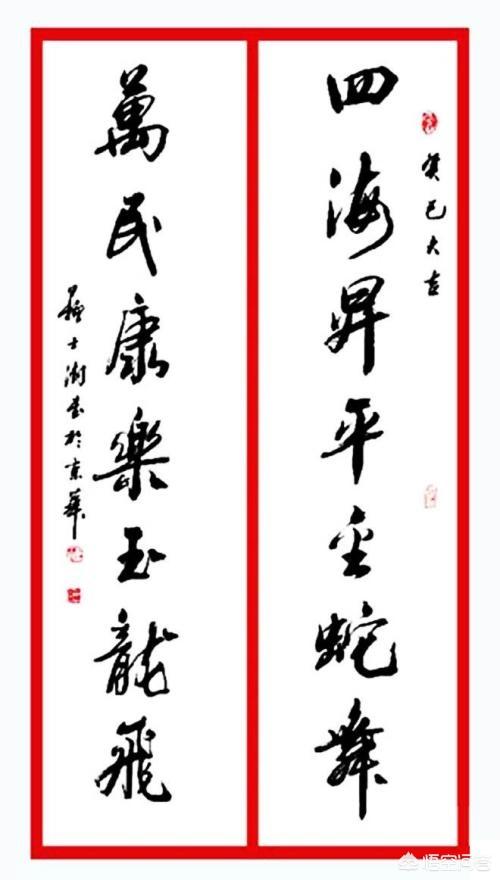 癸巳大吉
四海昇平金蛇舞
萬民康樂玉龍飛
蘇士澍書於京華
悟空问答